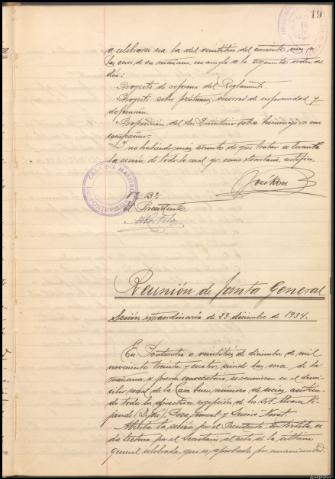 19
a celebrarse na ba del veintitres del corriente
a las once de su mañana con arreglo a la siguiente orden de
dia:
Proyecto de reforma del Reglamento
Proyecto sobre préstamos, socorros de enfermedad y
defunción
Proposición del Sr. sobre homenaje a un
compañero.
Y no habiendo más asuntos de que tratar se levanta
la sesión de todo lo cual yo como Secretario, certifico.
Vº Bº
El Presidente
Reunión de Junta General
Sesión extraordinaria de 23 diciembre de 1934.
En Pontevedra a veintitres de diciembre de mil
novecientos treinta y cuatro, siendo las once de la
mañana y previa convocatoria, se reunieron en el domi-
cilio social de la Casa buen número de socios, asistien-
do toda la directiva excepción de los Srs. Alvaro
José Juncal y
Abierta la sesión por el Presidente Sr. Portela se
da lectura por el Secretario al acta de la última
general celebrada, que es aprobada por unanimidad.